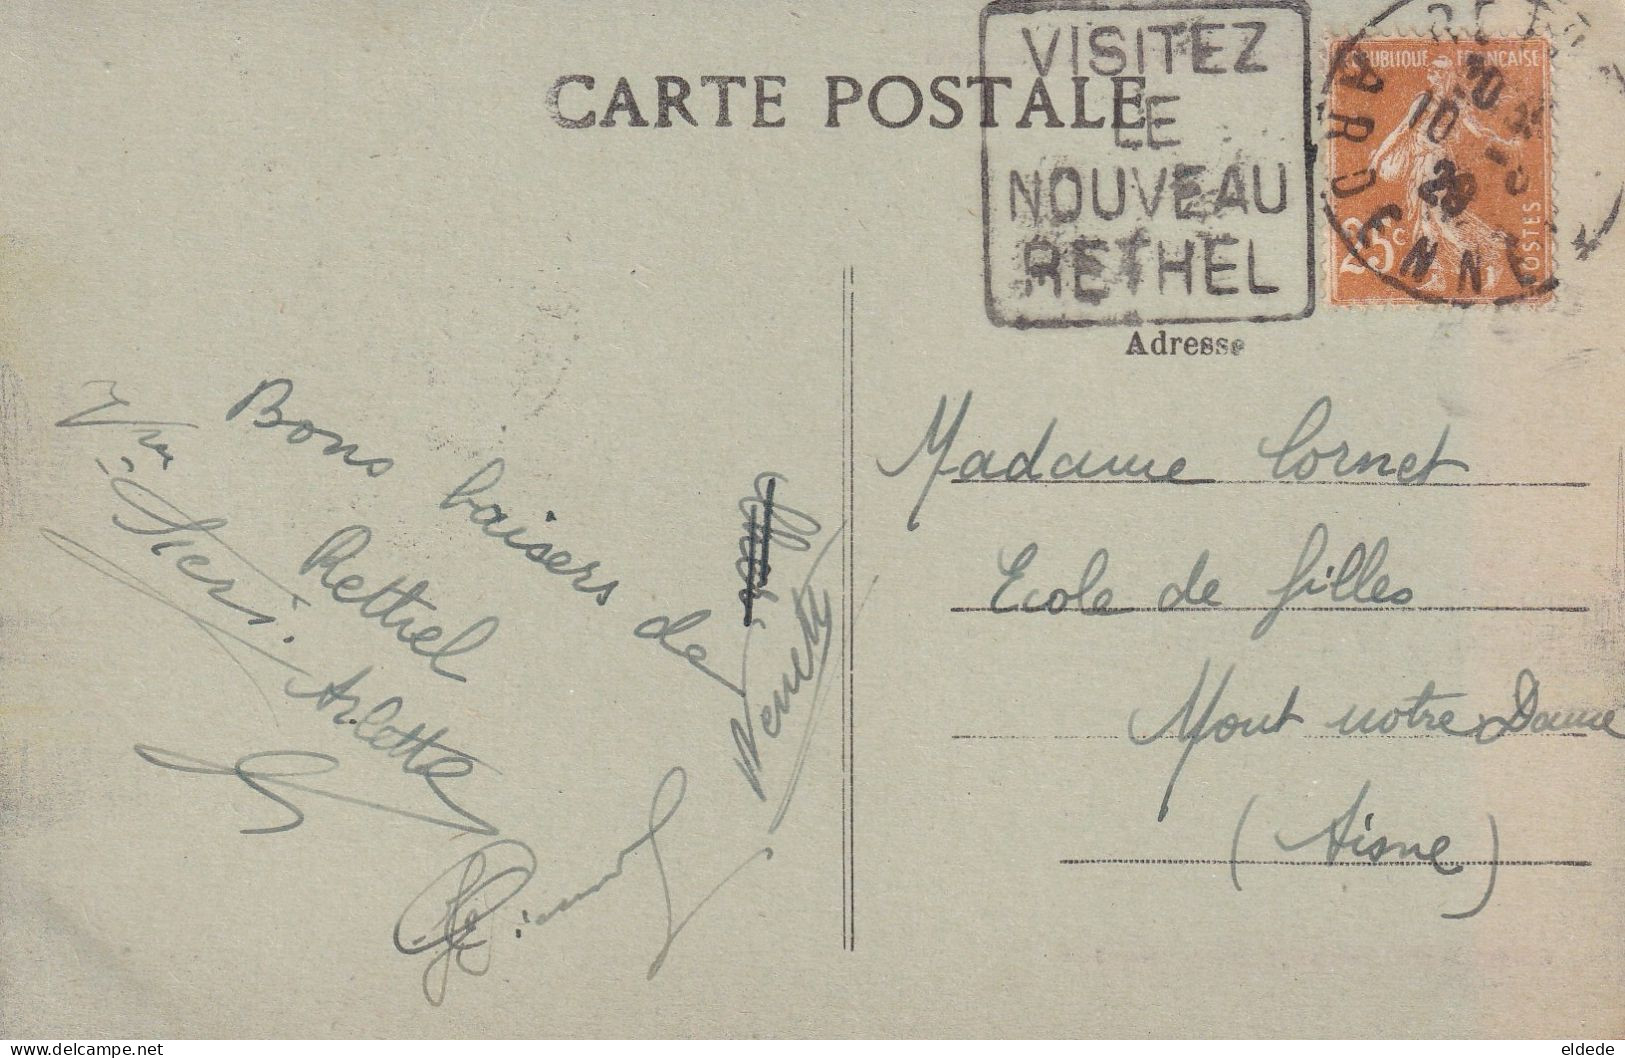 CARTE POSTALE
VISITEZ
LE
NOUVEAU
RETHEL
REPUBLIQUE FRANÇAISE
25c
POSTES
ARDENNE
10
29
Adresse
Bons baisers de
Rethel
Arlette
Madame Cornet
Ecole de filles
Mont notre Dame
(Aisne)
delcampe.net
eldede